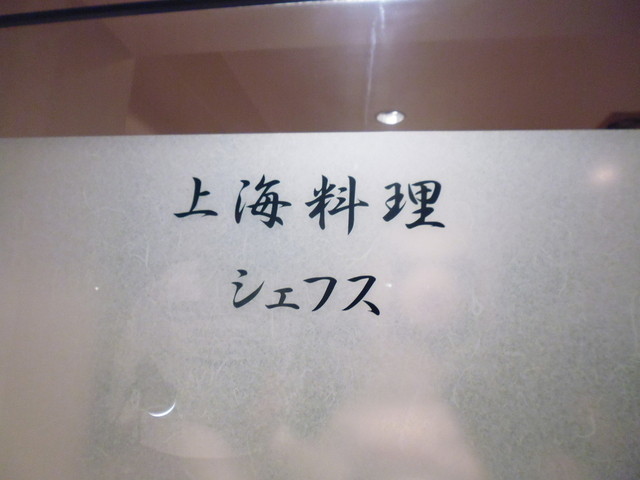 上海料理
シェフス